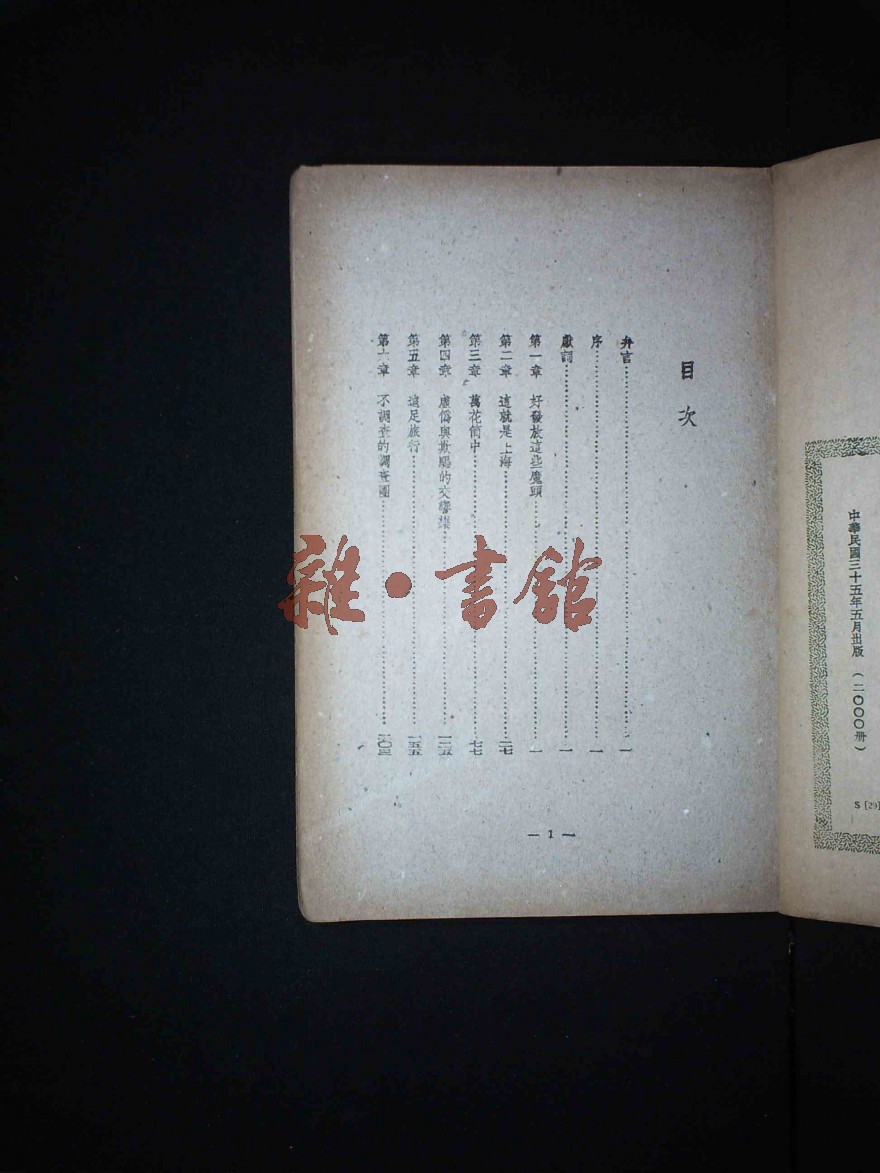 中華民國三十五年五月出版 (二〇〇〇册)
S [29]
目次
弁言 一
序 一
獻詞 一
第一章 好發放這些魔頭 一
第二章 這就是上海 二七
第三章 萬花筒中 七七
第四章 虛僞與欺騙的交響樂 一二五
第五章 遠足旅行 一五五
第六章 不調查的調查團 二〇三
— 1 —
雜·書館